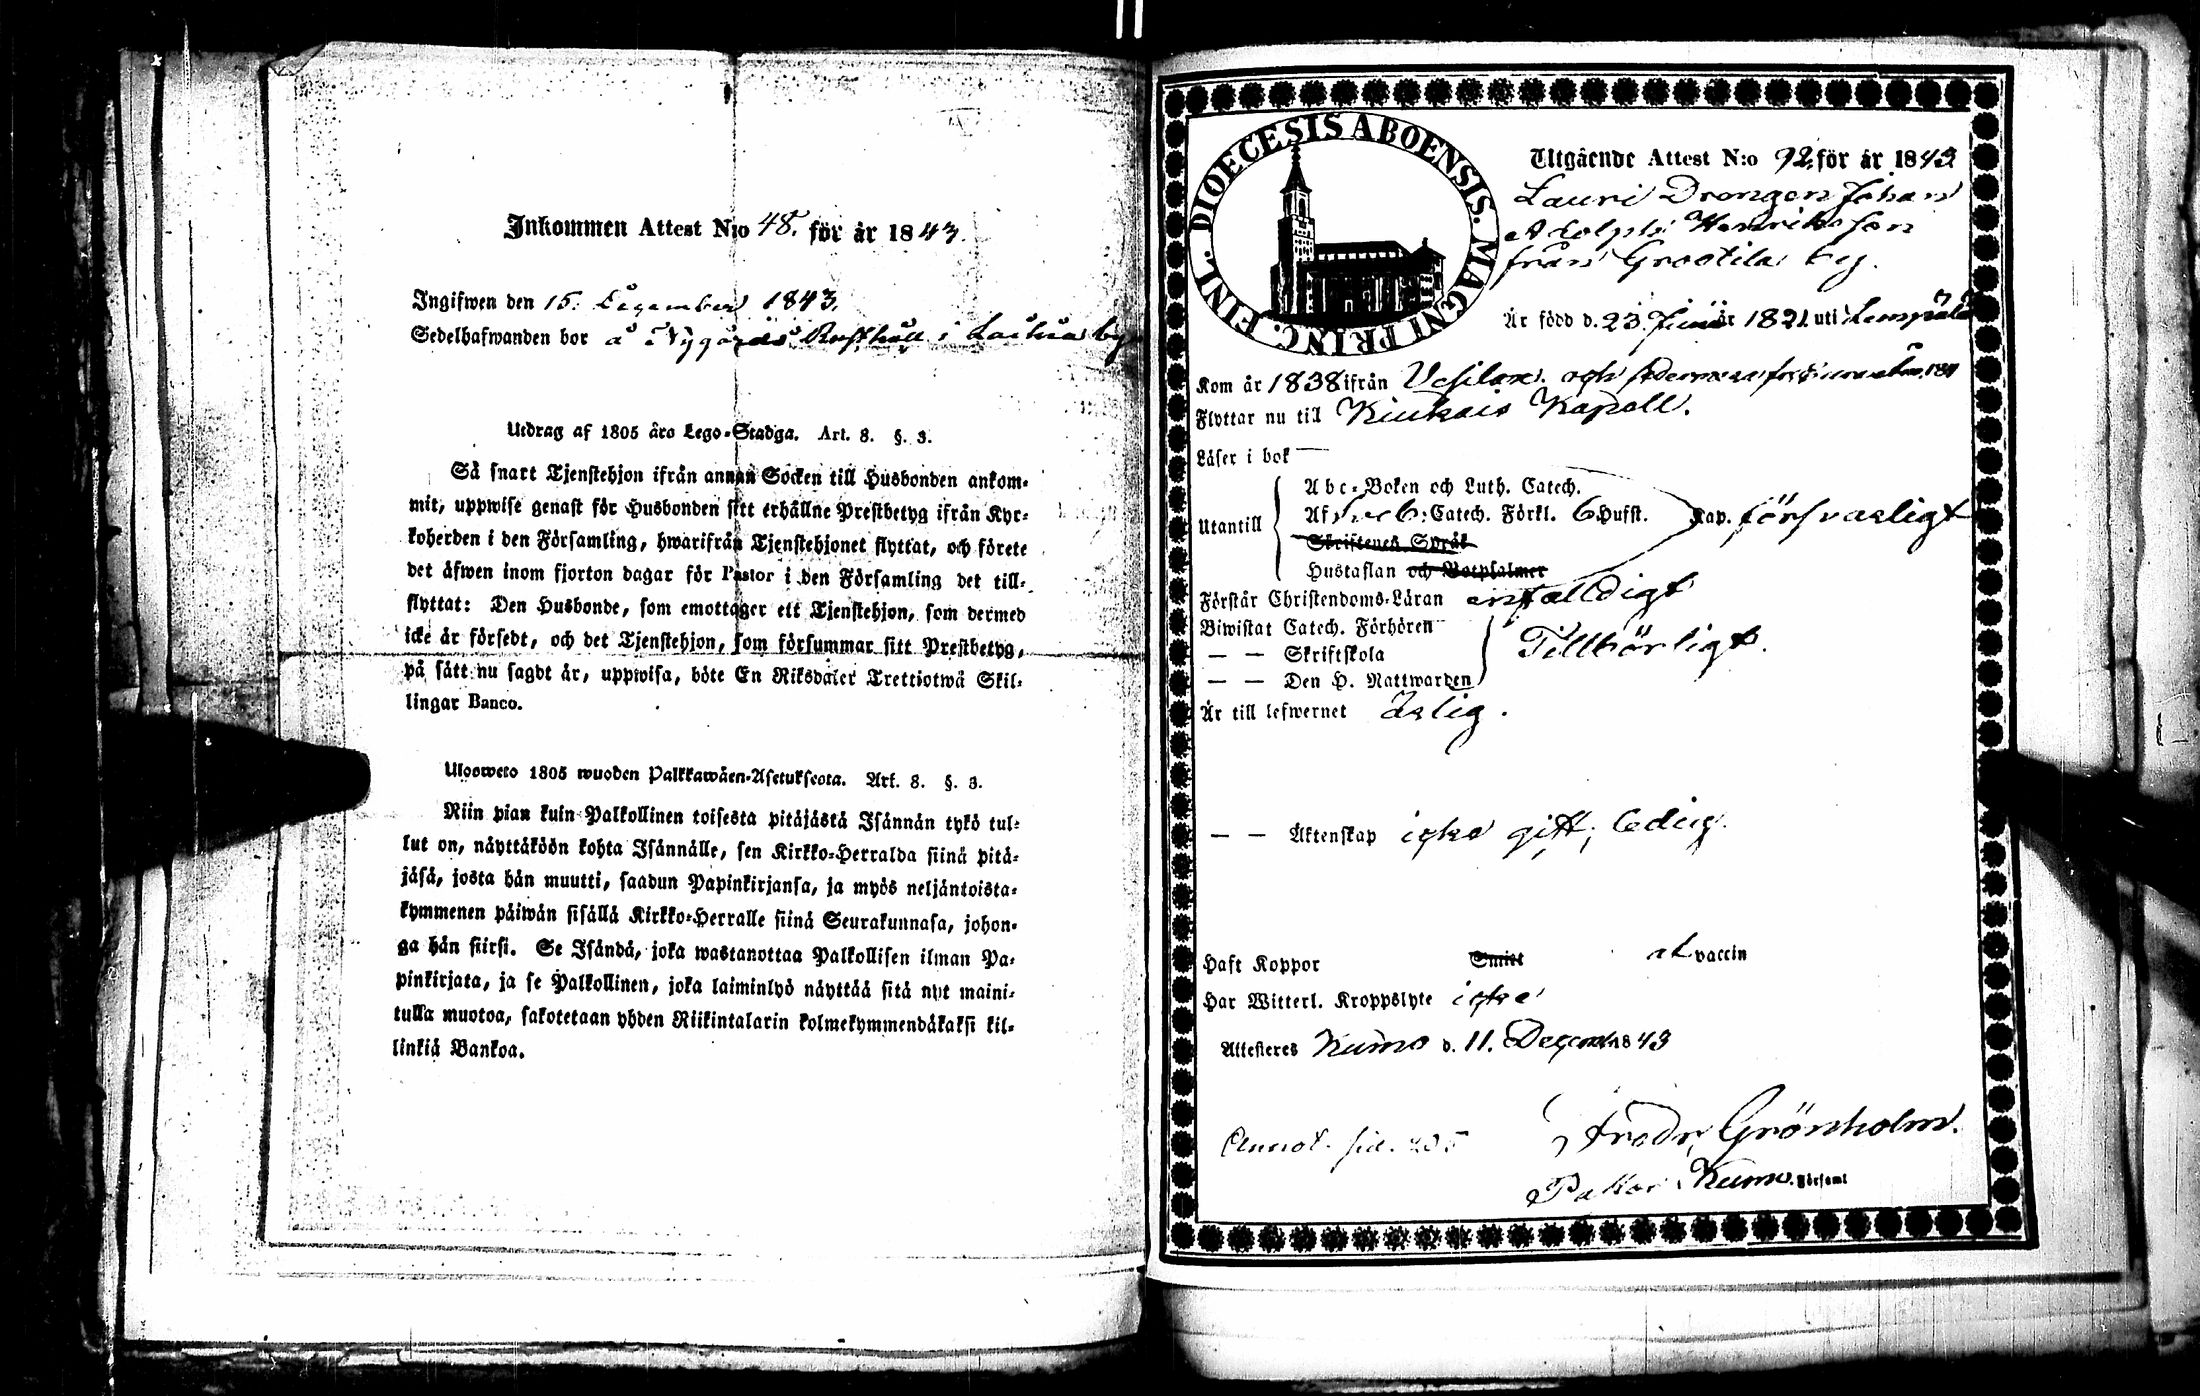 Inkommen Attest N:o 48. för år 1843.
Ingifwen den 15. December 1843.
Sedelhafwanden bor å Nygårds Rusthåll i Laihia by
Utdrag af 1805 års Lego-Stadga. Art. 8. §. 3.
Så snart Tjenstehjon ifrån annan Socken till Husbonden ankom-
mit, uppwise genast för Husbonden sitt erhållne Prestbetyg ifrån Kyr-
koherden i den Församling, hwarifrån Tjenstehjonet flyttat, och förete
det äfwen inom fjorton dagar för Pastor i den Församling det till-
flyttat: Den Husbonde, som emottager ett Tjenstehjon, som dermed
icke är försedt, och det Tjenstehjon, som försummar sitt Prestbetyg,
på sätt nu sagdt är, uppwisa, böte En Riksdaler Trettiotwå Skil-
lingar Banco.
Ulosweto 1805 wuoden Palkkawäen-Asetuksesta. Art. 8. §. 3.
Niin pian kuin Palkollinen toisesta pitäjästä Isännän tykö tul-
lut on, näyttäköön kohta Isännälle, sen Kirkko-Herralda siinä pitä-
jäsä, josta hän muutti, saadun Papinkirjansa, ja myös neljäntoista-
kymmenen päiwän sisällä Kirkko-Herralle siinä Seurakunnasa, johon-
ga hän siirsi. Se Isändä, joka wastanottaa Palkollisen ilman Pa-
pinkirjata, ja se Palkollinen, joka laiminlyö näyttää sitä nyt maini-
tulla muotoa, sakotetaan yhden Riikintalarin kolmekymmendäkaksi kil-
linkiä Bankoa.
DIOECESIS ABOENSIS. MAGNI PRINC. FINL.
Utgående Attest N:o 92 för år 1843
Lauri Drengen Johan
Adolph Henriksson
från Grootila by.
Är född d. 23 Junii år 1821 uti Lempälä
Kom år 1838 ifrån Vesilax. och
Flyttar nu till Kiukais Kapell.
Läser i bok
Utantill
Abc-Boken och Luth. Catech.
Af Catech. Förkl. 6 Hufst. Kap. försvarligt
Skriftenes Språk
Hustaflan och Botpsalmer
Förstår Christendoms-Läran enfalldigt
Biwistat Catech. Förhören
— — Skriftskola Tillbörligt.
— — Den H. Nattwarden
Är till lefwernet ärlig.
— — Äktenskap icke gift, ledig.
Haft Koppor Smitt af vaccin
Har Witterl. Kroppslyte icke
Attesteres Kumo d. 11. Decemb. 1843
Annot. sid. 205
Fredr. Grönholm.
Pastor i Kumo Församl